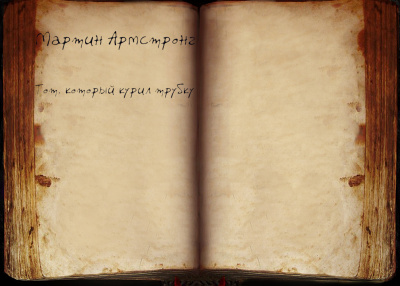 Мартин Армстронг
Тот, который курил трубку